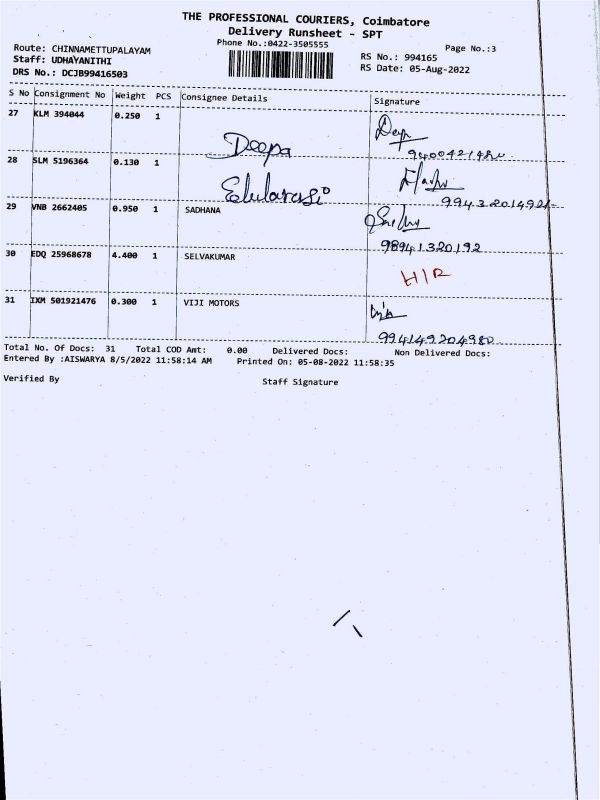 THE PROFESSIONAL COURIERS, Coimbatore
Delivery Runsheet - SPT
Phone No.:0422-3505555
Page No.:3
Route: CHINNAMETTUPALAYAM
Staff: UDHAYANITHI
DRS No.: DCJB99416503
RS No.: 994165
RS Date: 05-Aug-2022
S No Consignment No Weight PCS Consignee Details Signature
27 KLM 394044 0.250 1 Deepa
28 SLM 5196364 0.130 1
29 VNB 2662405 0.950 1 SADHANA
98941320192
30 EDQ 25968678 4.400 1 SELVAKUMAR H/R
31 IXM 501921476 0.300 1 VIJI MOTORS
Total No. Of Docs: 31 Total COD Amt: 0.00 Delivered Docs: Non Delivered Docs:
Entered By :AISWARYA 8/5/2022 11:58:14 AM Printed On: 05-08-2022 11:58:35
Verified By Staff Signature